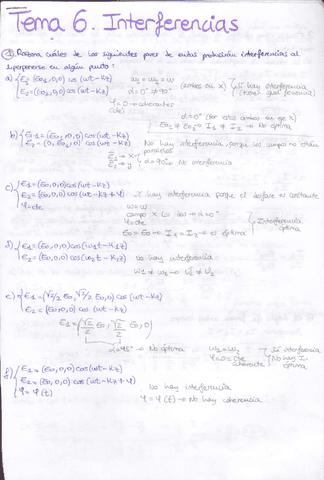 Tema 6. Interferencias
1) Razona cuáles de los siguientes pares de ondas producirán interferencias al
superponerse en algún punto:
a) E1=(E01,0,0) cos(ωt-kz)
E2=(E02,0,0) cos(ωt-kz)
ω1=ω2=ω
α=0° ≠90° (ambas en x)
φ=0 → coherentes
(cte)
Sí hay interferencia
α=0° (por estar ambos en eje x)
E01≠E02 → I1≠I2 → No óptima
b) E1=(E01,0,0) cos(ωt-kz)
E2=(0,E02,0) cos(ωt-kz)
No hay interferencia, porque los campos no están
paralelos
E1→x
E2→y
α=90° → No interferencia
c) E1=(E0,0,0)cos(ωt-kz)
E2=(E0,0,0) cos(ωt-kz+φ)
φ=cte
Sí hay interferencia porque el desfase es constante
ω=ω
campo x los dos → α=0°
φ=cte
E0=E0 → I1=I2 → es óptima
Interferencia
óptima
d) E1=(E0,0,0)cos(ω1t-k1z)
E2=(E0,0,0) cos(ω2t-k2z)
No hay interferencia
ω1≠ω2
e) E1=(√2/2 E0,√2/2 E0,0) cos(ωt-kz)
E2=(E0,0,0) cos(ωt-kz)
E1=(√2/2 E0, √2/2 E0, 0)
α=45° → No óptima
ω1=ω2
φ=0=cte
coherente
Sí interferencia
No hay I.
óptima
f) E1=(E0,0,0)cos(ωt-kz)
E2=(E0,0,0) cos(ωt-kz+φ)
φ=φ(t)
No hay interferencia
φ=φ(t) → No hay coherencia